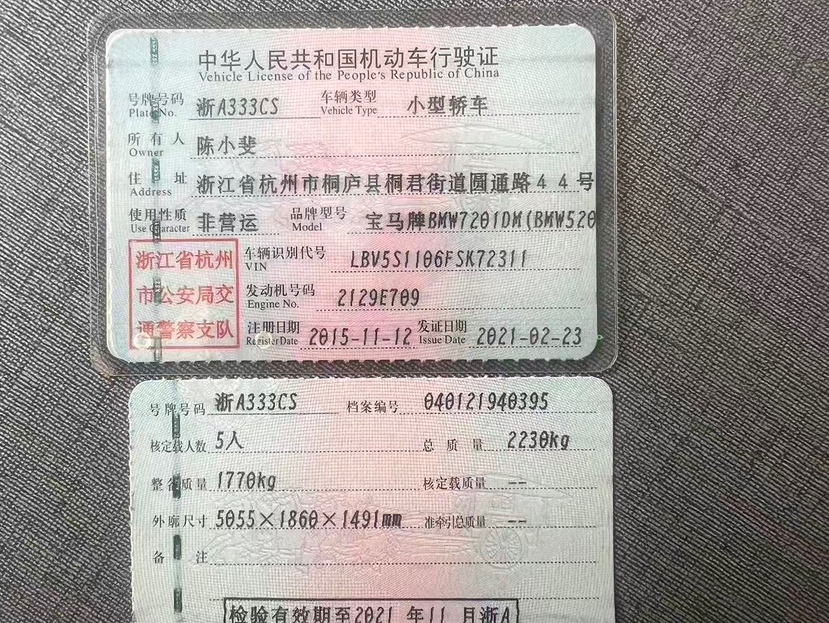 中华人民共和国机动车行驶证
Vehicle License of the People's Republic of China
号牌号码 浙A333CS 车辆类型 小型轿车
Plate No. Vehicle Type
所有人 陈小斐
Owner
住址 浙江省杭州市桐庐县桐君街道圆通路44号
Address
使用性质 非营运 品牌型号 宝马牌BMW7201DM(BMW520
Use Character Model
浙江省杭州
市公安局交
通警察支队
车辆识别代号 LBV5S1106FSK72311
VIN
发动机号码 2129E709
Engine No.
注册日期 2015-11-12 发证日期 2021-02-23
Register Date Issue Date
号牌号码 浙A333CS 档案编号 040121940395
核定载人数 5人 总质量 2230kg
整备质量 1770kg 核定载质量 --
外廓尺寸 5055×1860×1491mm 准牵引总质量 --
备注
检验有效期至2021年11月浙A